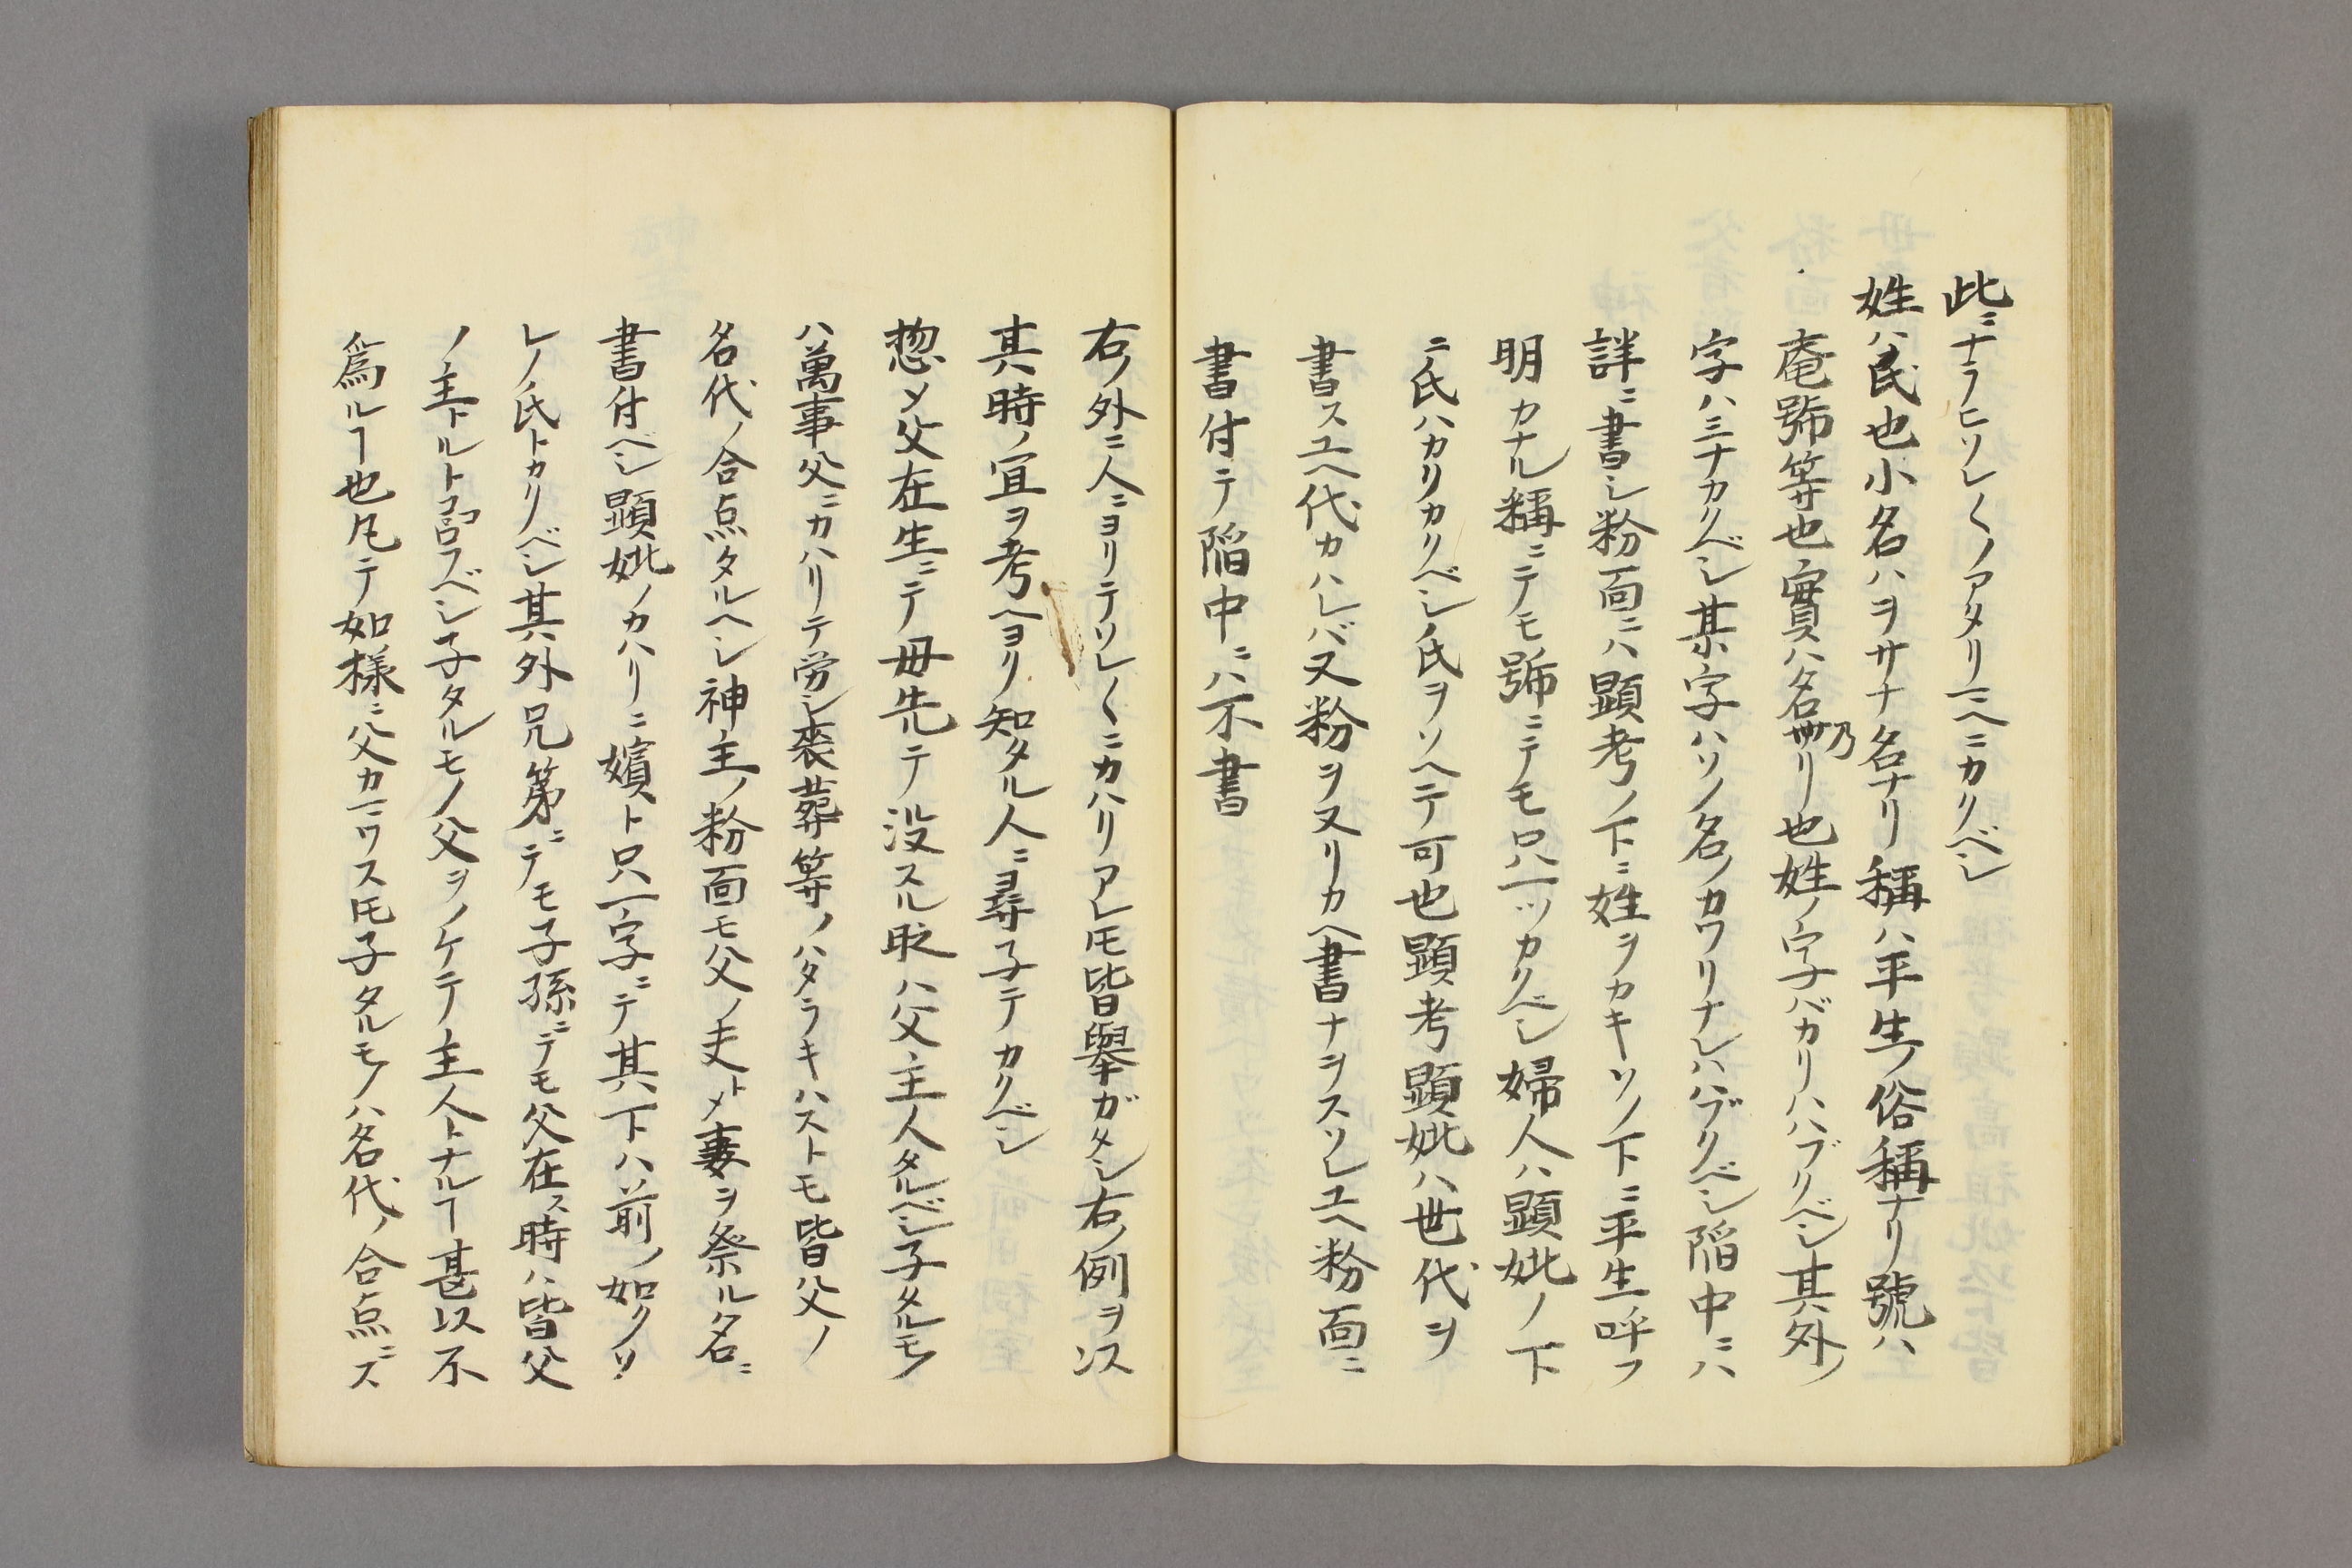 此ニナラヒソレ〱ノアタリマヘニカクベシ
姓ハ氏也小名ハヲサナ名ナリ稱ハ平生ノ俗稱ナリ號ハ
庵号等也實ハ名乃リ也姓ノ字バカリハハブクベシ其外ノ
字ハミナカクベシ某字ハソノ名ノカワリナレハハブクベシ陷中ニハ
詳ニ書シ粉面ニハ顕考ノ下ニ姓ヲカキソノ下ニ平生呼フ
明カナル稱ニテモ号ニテモ只一ツカクベシ婦人ハ顕妣ノ下
ニ氏ハカリカクベシノ氏ヲソヘテ可也顕考顕妣ハ世代ヲ
書スユヘ代カハレバ又粉ヲヌリカヘ書ナヲスソレユヘ粉面ニ
書付テ陷中ニハ不書
右ノ外ニ人ニヨリテソレ〱ニカハリアレ𪜈皆舉ガタシ右ノ例ヲ以
其時ノ宜ヲ考ヘヨリ知タル人ニ尋子テカクベシ
惣〆父在生ニテ母先テ没スル時ハ父主人タルベシ子タルモノ
ハ萬事父ニカハリテ労シ喪葬等ノハタラキハストモ皆父ノ
名代ノ合点タルヘシ神主ノ粉面モ父ノ夫ト〆妻ヲ祭ル名ニ
書付ベシ顕妣ノカハリニ嬪ト只一字ニテ其下ハ前ノ如クソ
レノ氏トカクベシ其外兄第ニテモ子孫ニテモ父在ス時ハ皆父
ノ主トルト心得ベシ子タルモノ父ヲノケテ主人トナルヿ甚以不
爲ルヿ也凡テ如様ニ父カマワス𪜈子タルモノハ名代ノ合点ニズ